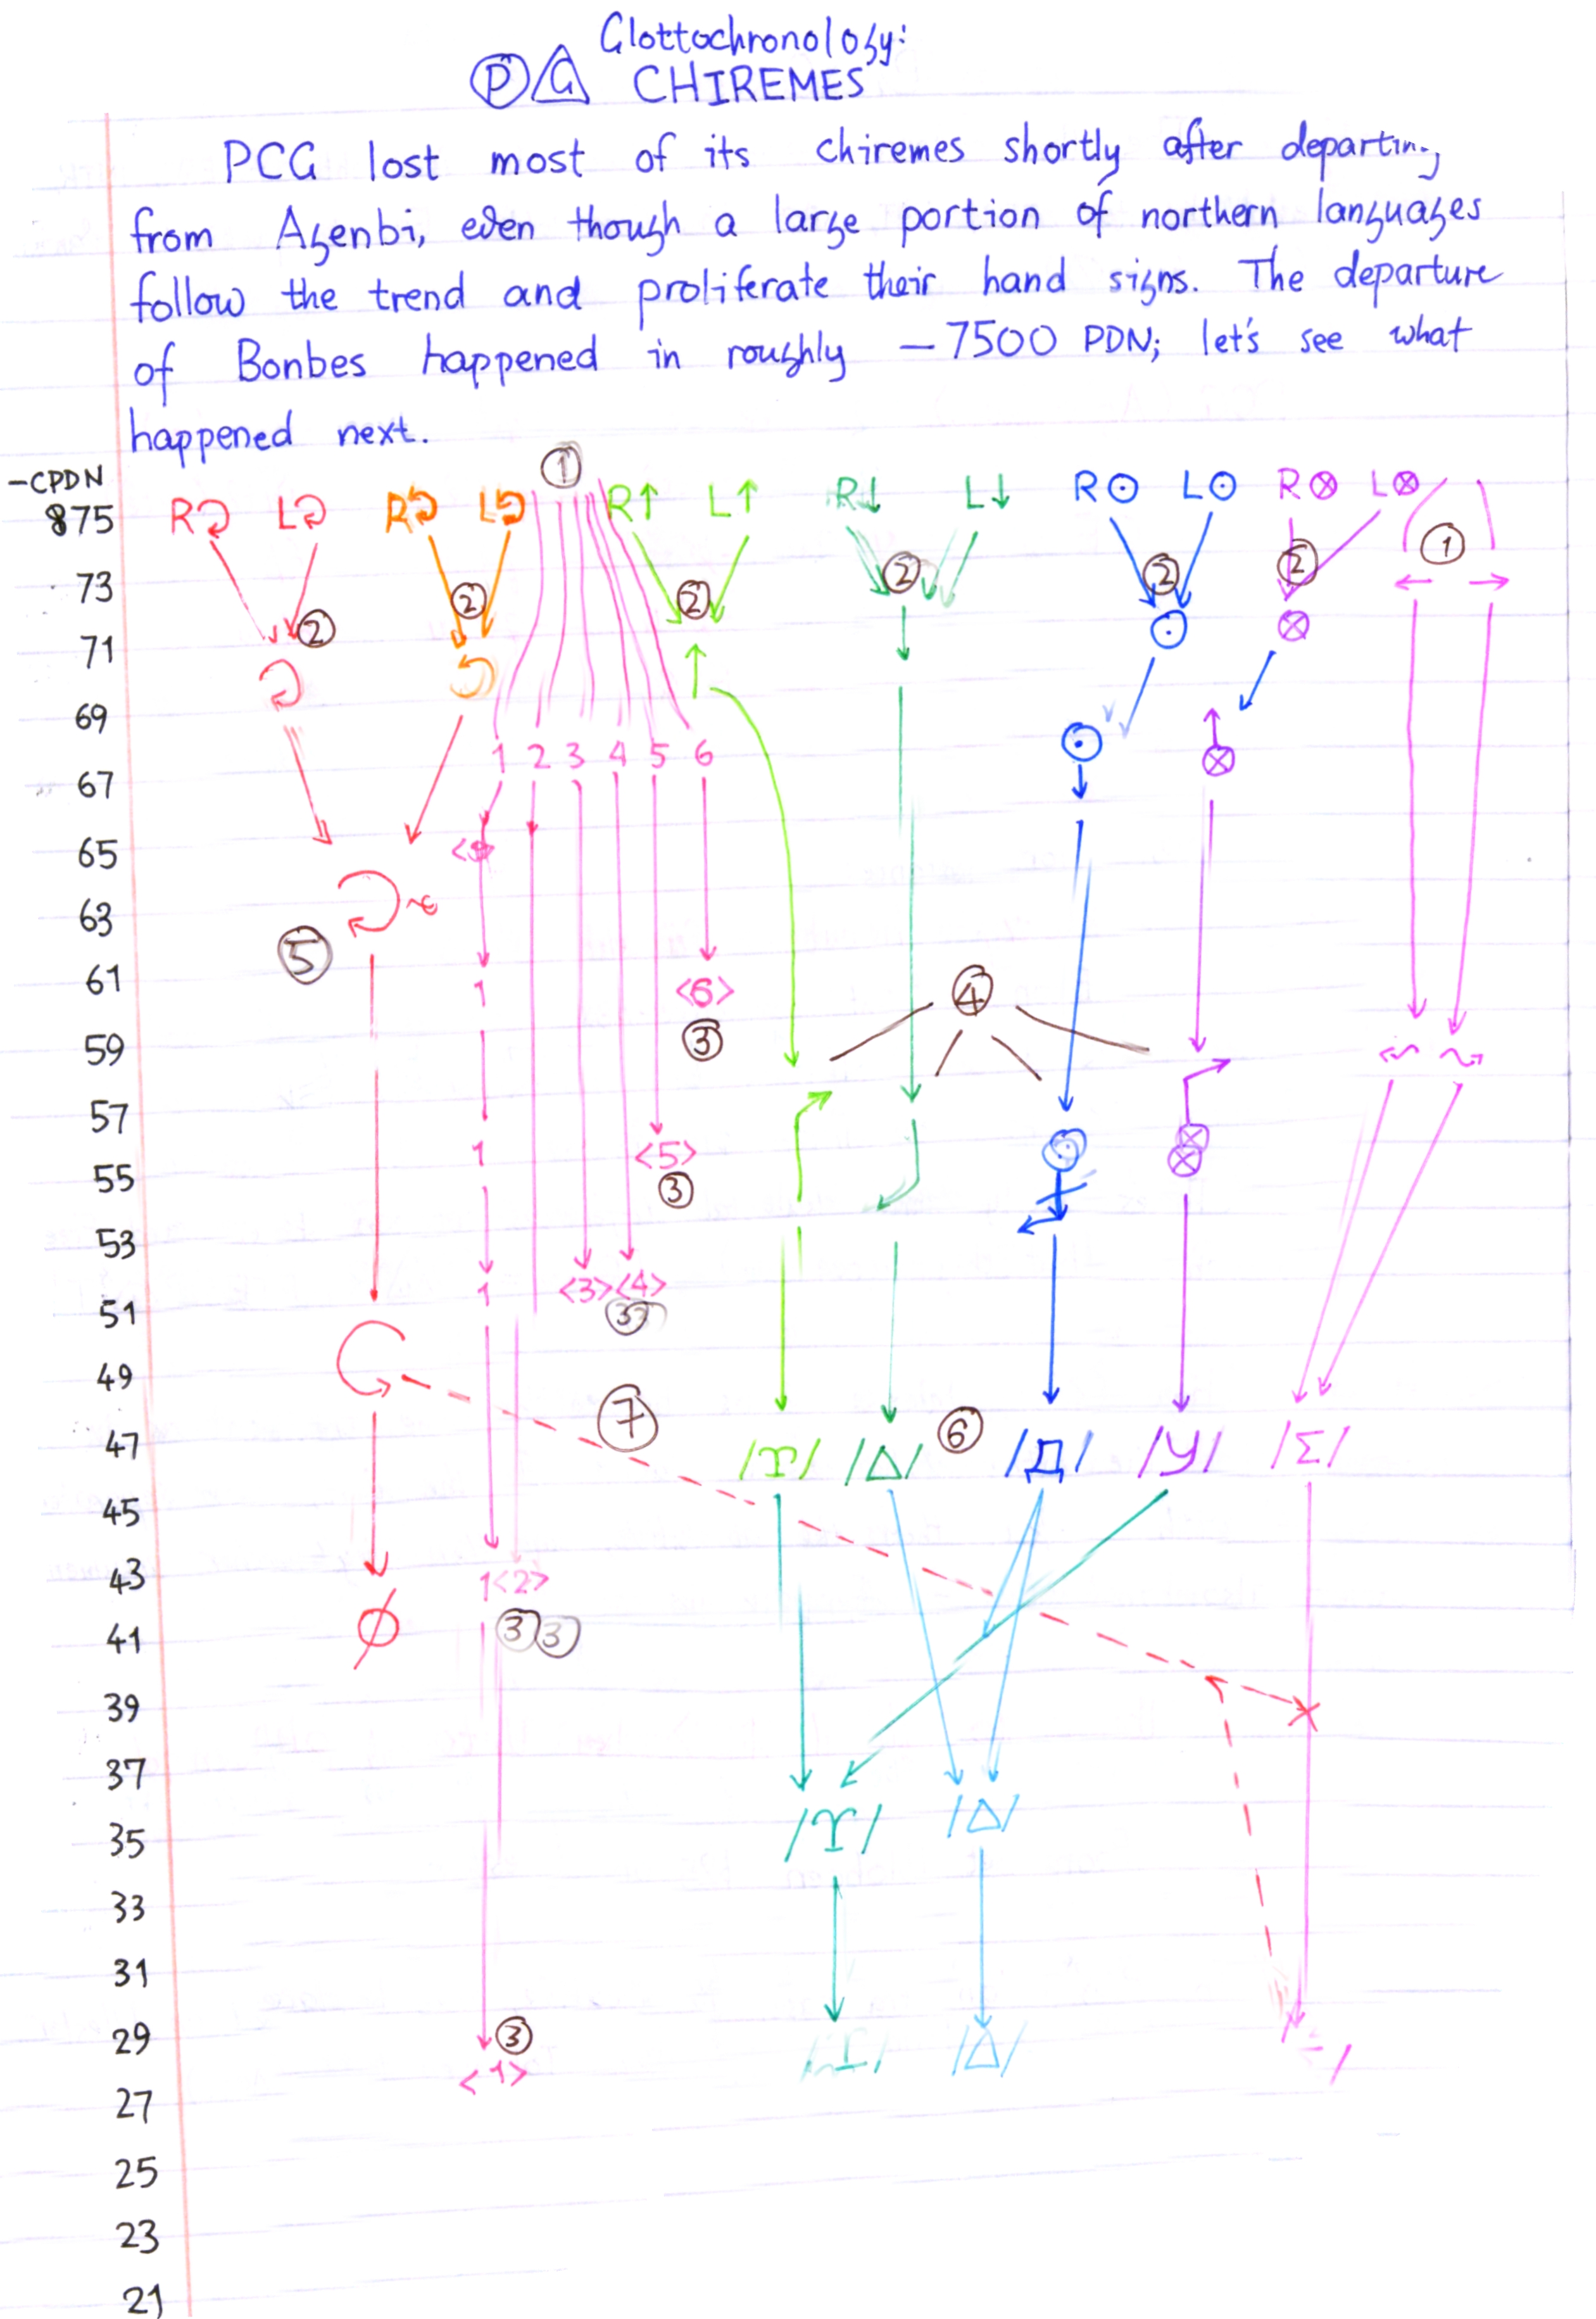 Glottochronology:
PG CHIREMES
PCG lost most of its chiremes shortly after departing
from Agenbi, even though a large portion of northern languages
follow the trend and proliferate their hand signs. The departure
of Bonbes happened in roughly −7500 PDN; let's see what
happened next.
−CPDN
875 R↻ L↻ R↺ L↺ ① R↑ L↑ R↓ L↓ R⊙ L⊙ R⊗ L⊗
73 ② ② ② ② ② ② ① ← →
71 ↻ ↺ ↑ ⊙ ⊗
69
67 1 2 3 4 5 6 ⊙ ⊗
65
63 ⑤
61 1 <6> ④
59 ③
57
55 1 <5> ③ ⊙ ⊗
53
51 1 <3> <4> ③
49
47 ⑦ /ϒ/ /Δ/ ⑥ /Д/ /У/ /Σ/
45
43 1 <2>
41 ∅ ③ ③
39
37
35 /ϒ/ /Δ/
33
31
29 ③ /Δ/
27 <1>
25
23
21